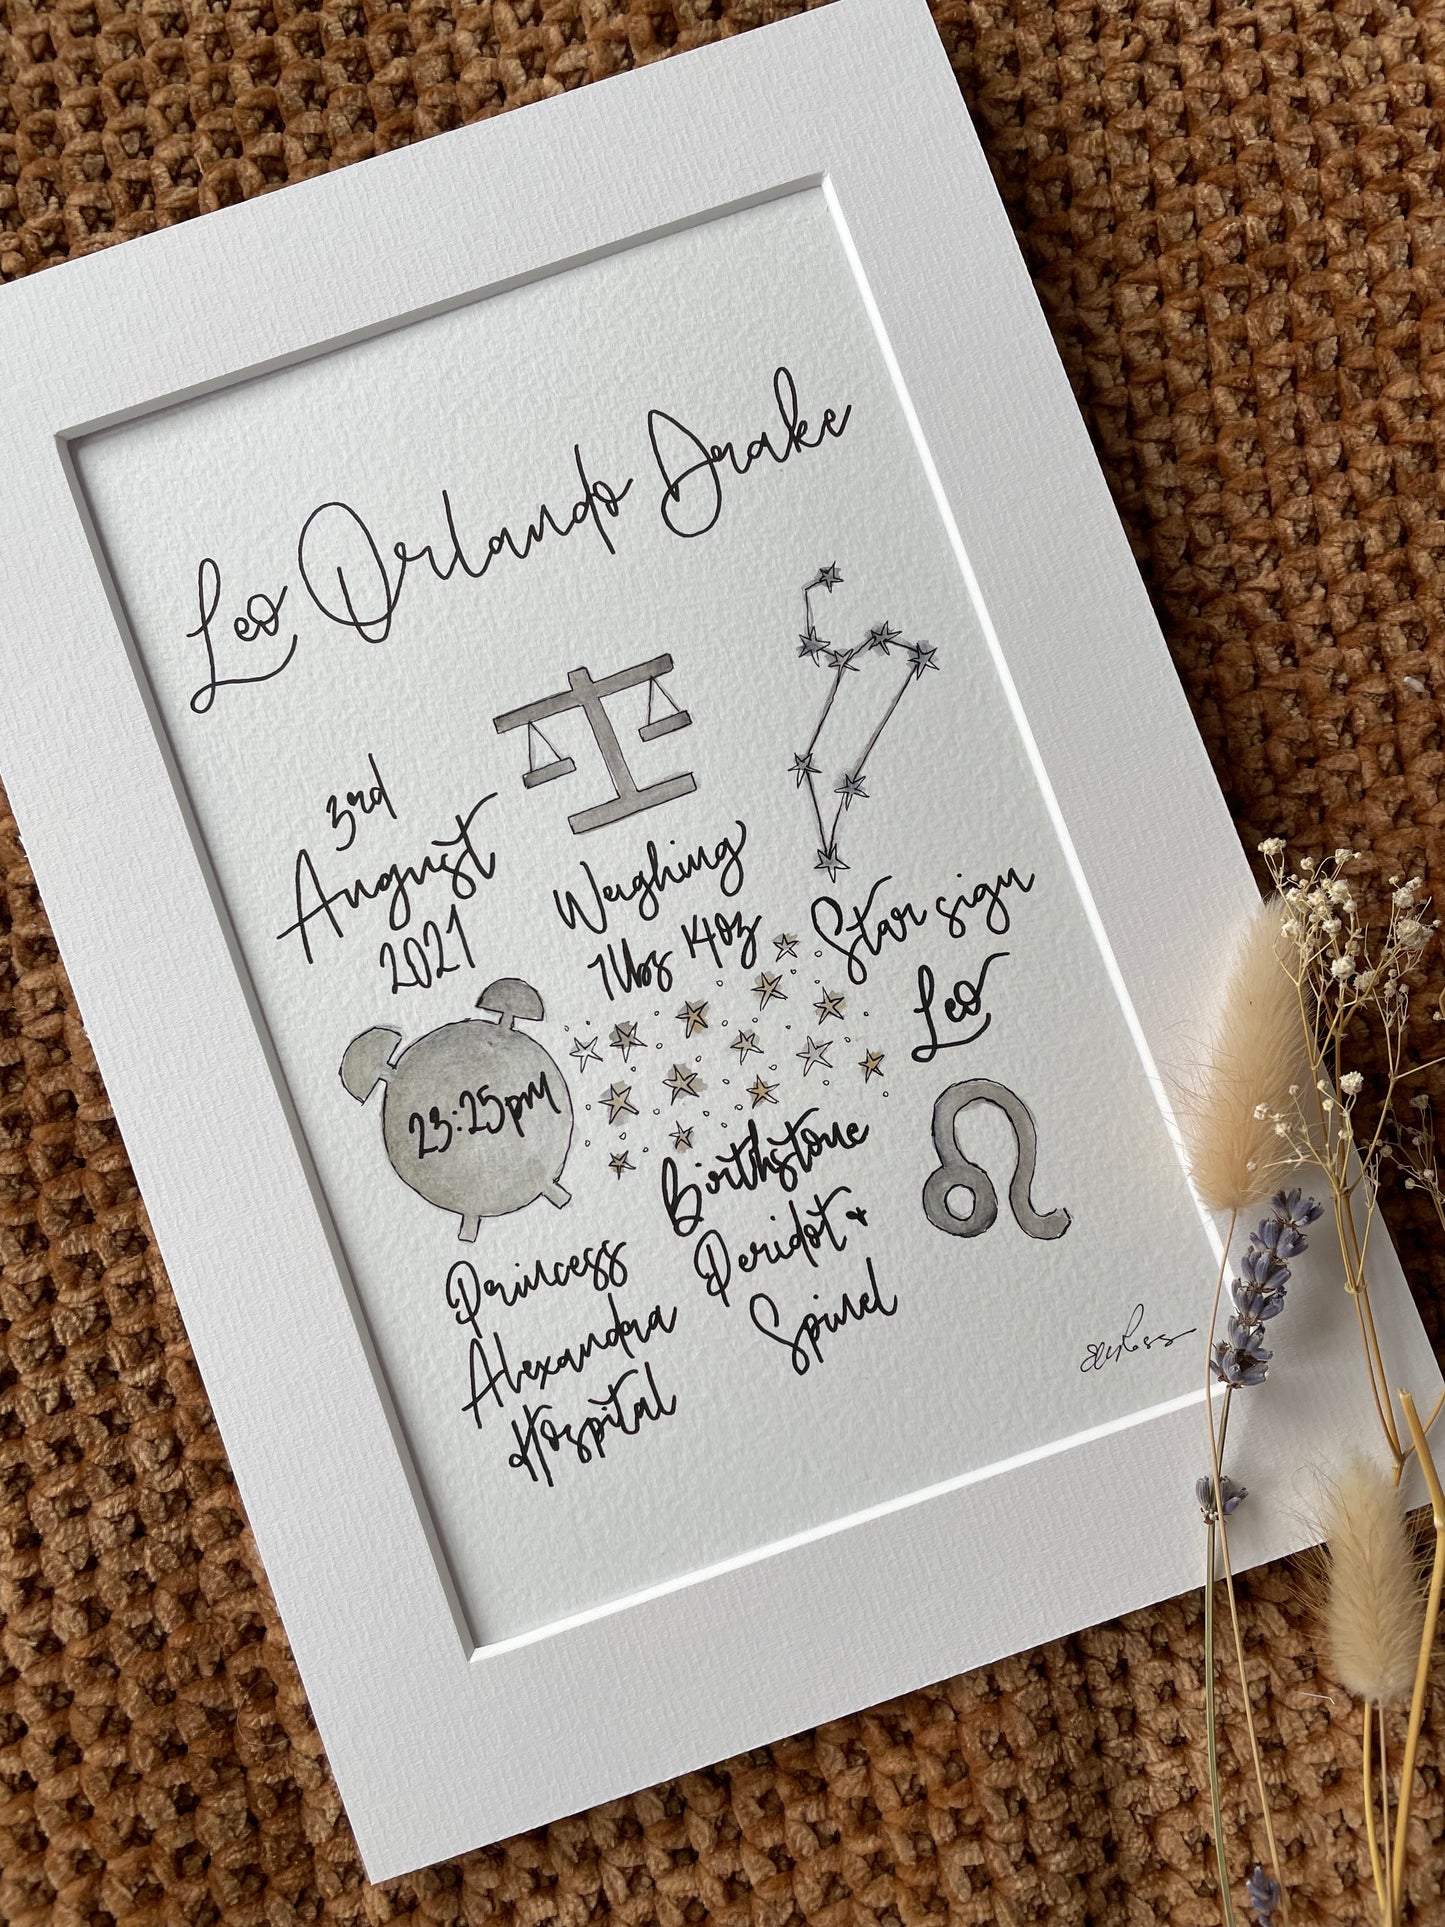 Leo Orlando Drake
3rd
August
2021
Weighing
7lbs 14oz
Star sign
Leo
23:25pm
Birthstone
Peridot +
Spinel
Princess
Alexandra
Hospital